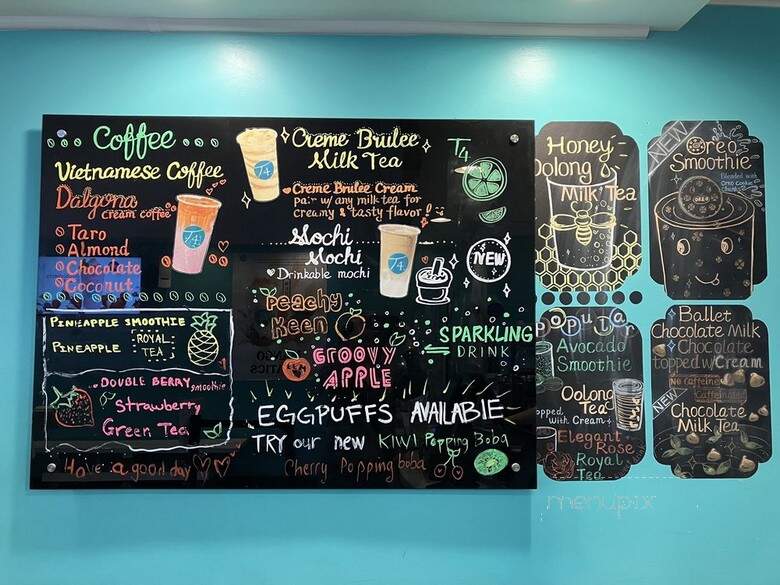 Coffee
Vietnamese Coffee
Dalgona
cream coffee
Taro
Almond
Chocolate
Coconut
PINEAPPLE SMOOTHIE
PINEAPPLE ROYAL
TEA
DOUBLE BERRY smoothie
Strawberry
Green Tea
Have a good day
T4
T4
Creme Brulee
Milk Tea
Creme Brulee Cream
pair w/ any milk tea for
creamy & tasty flavor!
Mochi
Mochi
Drinkable mochi
T4
T4
NEW
Peachy
Keen
GROOVY
APPLE
SPARKLING
DRINK
EGGPUFFS AVAILABLE
TRY our new KIWI Popping Boba
Cherry Popping boba
Honey
Oolong
Milk Tea
NEW
Oreo
Smoothie
Blended with
Oreo Cookie
OREO
Popular
Avocado
Smoothie
Oolong
Tea
topped
with Cream
Elegant
Rose
Royal
Tea
Ballet
Chocolate Milk
Chocolate
topped w/Cream
No caffeine
Caffeinated
NEW
Chocolate
Milk Tea
menupix